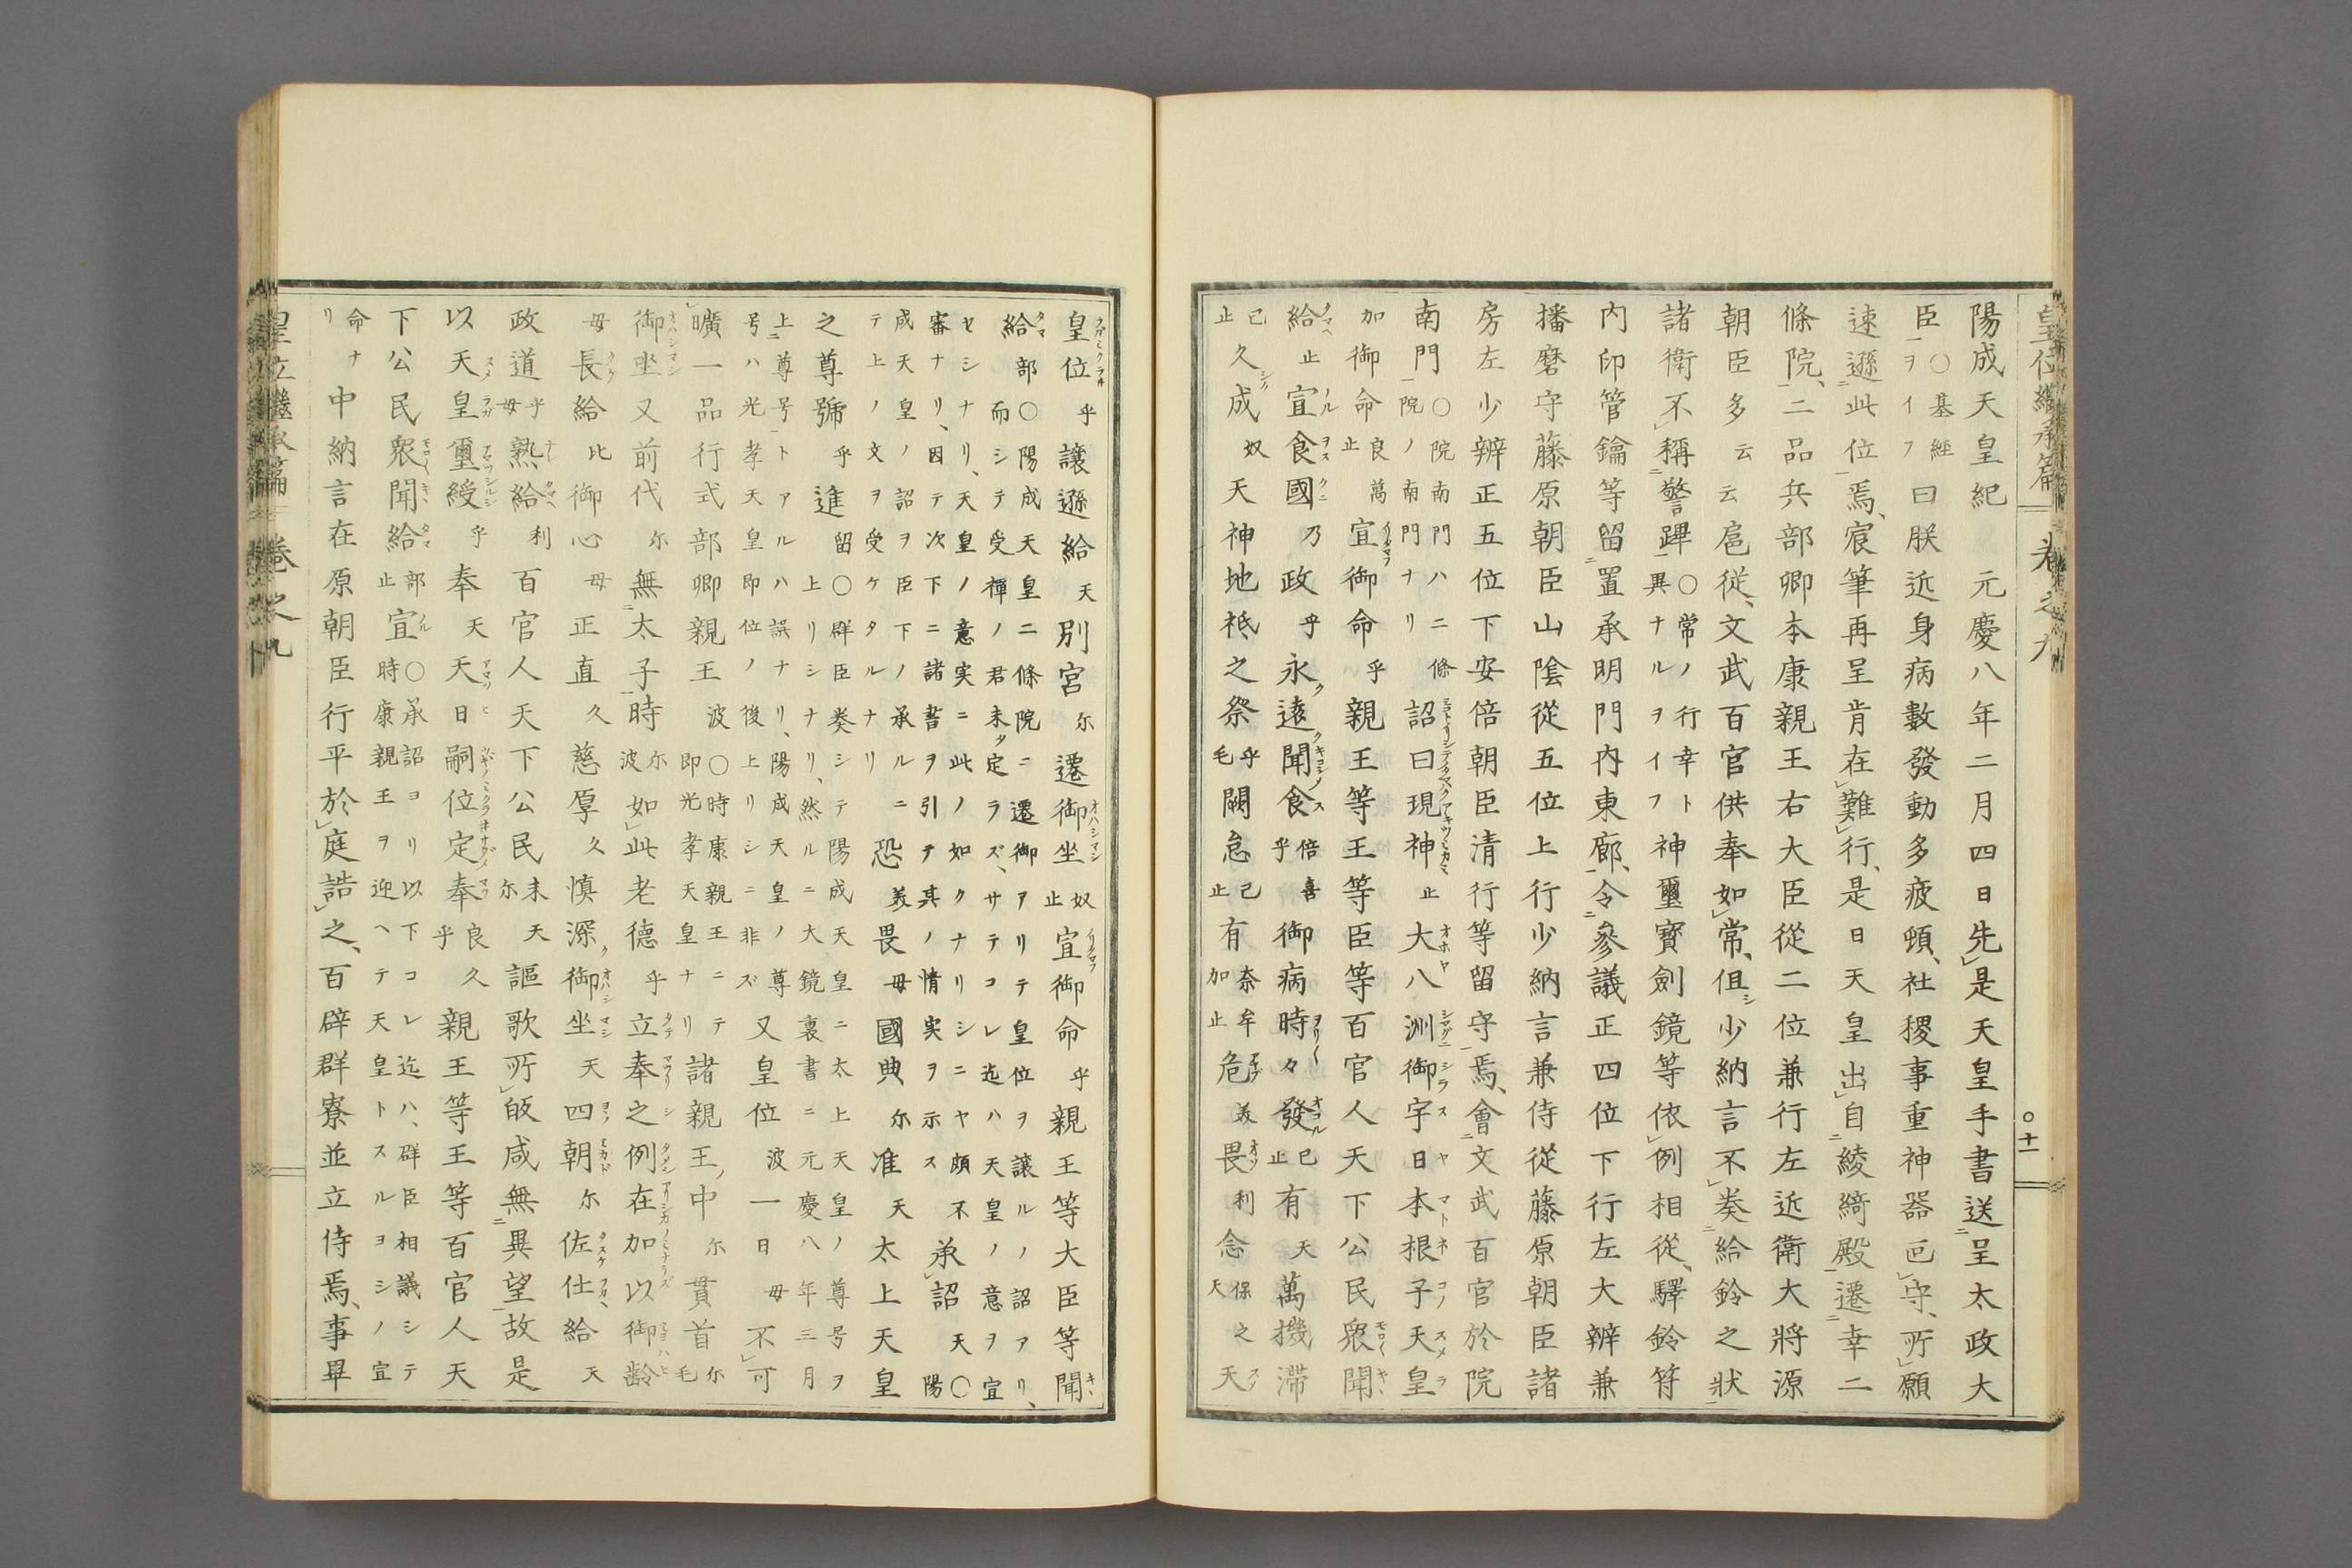 皇位繼承篇 卷之九 〇十一
陽成天皇紀 元慶八年二月四日先是天皇手書送呈太政大
臣〇基經ヲイフ曰朕近身病數發動多疲頓、社稷事重神器叵守、所願
速遜此位焉、宸筆再呈肯在難行、是日天皇出自綾綺殿遷幸二
條院、二品兵部卿本康親王右大臣從二位兼行左近衛大將源
朝臣多云云扈從、文武百官供奉如常、但少納言不奏給鈴之狀
諸衛不稱警蹕〇常ノ行幸ト異ナルヲイフ神璽寶劍鏡等依例相從、驛鈴符
内印管鑰等留置承明門内東廊、令參議正四位下行左大辨兼
播磨守藤原朝臣山陰從五位上行少納言兼侍從藤原朝臣諸
房左少辨正五位下安倍朝臣清行等留守焉、會文武百官於院
南門〇院南門ハ二條院ノ南門ナリ詔曰現神止大八洲御宇日本根子天皇
加御命良萬止宣御命乎親王等王等臣等百官人天下公民衆聞
給止宣食國乃政乎永遠聞食倍喜乎御病時々發己止有天萬機滯
己止久成奴天神地祇之祭乎毛闕怠己止有奈牟加止危美畏利念保之天天
皇位乎讓遜給天別宮尓遷御坐奴止宣御命乎親王等大臣等聞
給部〇陽成天皇二條院ニ遷御アリテ皇位ヲ讓ルノ詔アリ、而シテ受禪ノ君未タ定ラズ、サテコレ迄ハ天皇ノ意ヲ宣
セシナリ、天皇ノ意実ニ此ノ如クナリシニヤ頗不審ナリ、因テ次下ニ諸書ヲ引テ其ノ情実ヲ示ス承詔天〇陽
成天皇ノ詔ヲ臣下ノ承ルニテ上ノ文ヲ受ケタルナリ恐美畏毋國典尓准天太上天皇
之尊號乎進留〇群臣奏シテ陽成天皇ニ太上天皇ノ尊号ヲ上リシナリ、然ルニ大鏡裏書ニ元慶八年三月
上尊号トアルハ誤ナリ、陽成天皇ノ尊号ハ光孝天皇即位ノ後上リシニ非ズ又皇位波一日毋不可
曠一品行式部卿親王波〇時康親王ニテ即光孝天皇ナリ諸親王中尓貫首尓毛
御坐又前代尓無太子時尓波如此老德乎立奉之例在加以御齡
毋長給比御心毋正直久慈厚久慎深御坐天四朝尓佐仕給天
政道乎毋熟給利百官人天下公民末天尓謳歌所皈咸無異望故是
以天皇璽綬乎奉天天日嗣位定奉良久乎親王等王等百官人天
下公民衆聞給部止宣〇承詔ヨリ以下コレ迄ハ、群臣相議シテ時康親王ヲ迎ヘテ天皇トスルヨシノ宣
命ナリ中納言在原朝臣行平於庭誥之、百辟群寮並立侍焉、事畢
皇位繼承篇 卷之九